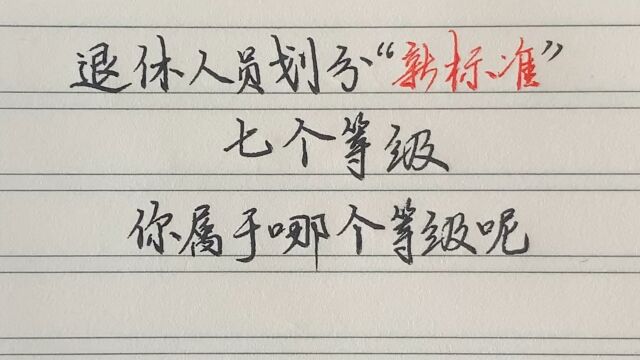 退休人员划分“新标准”
七个等级
你属于哪个等级呢